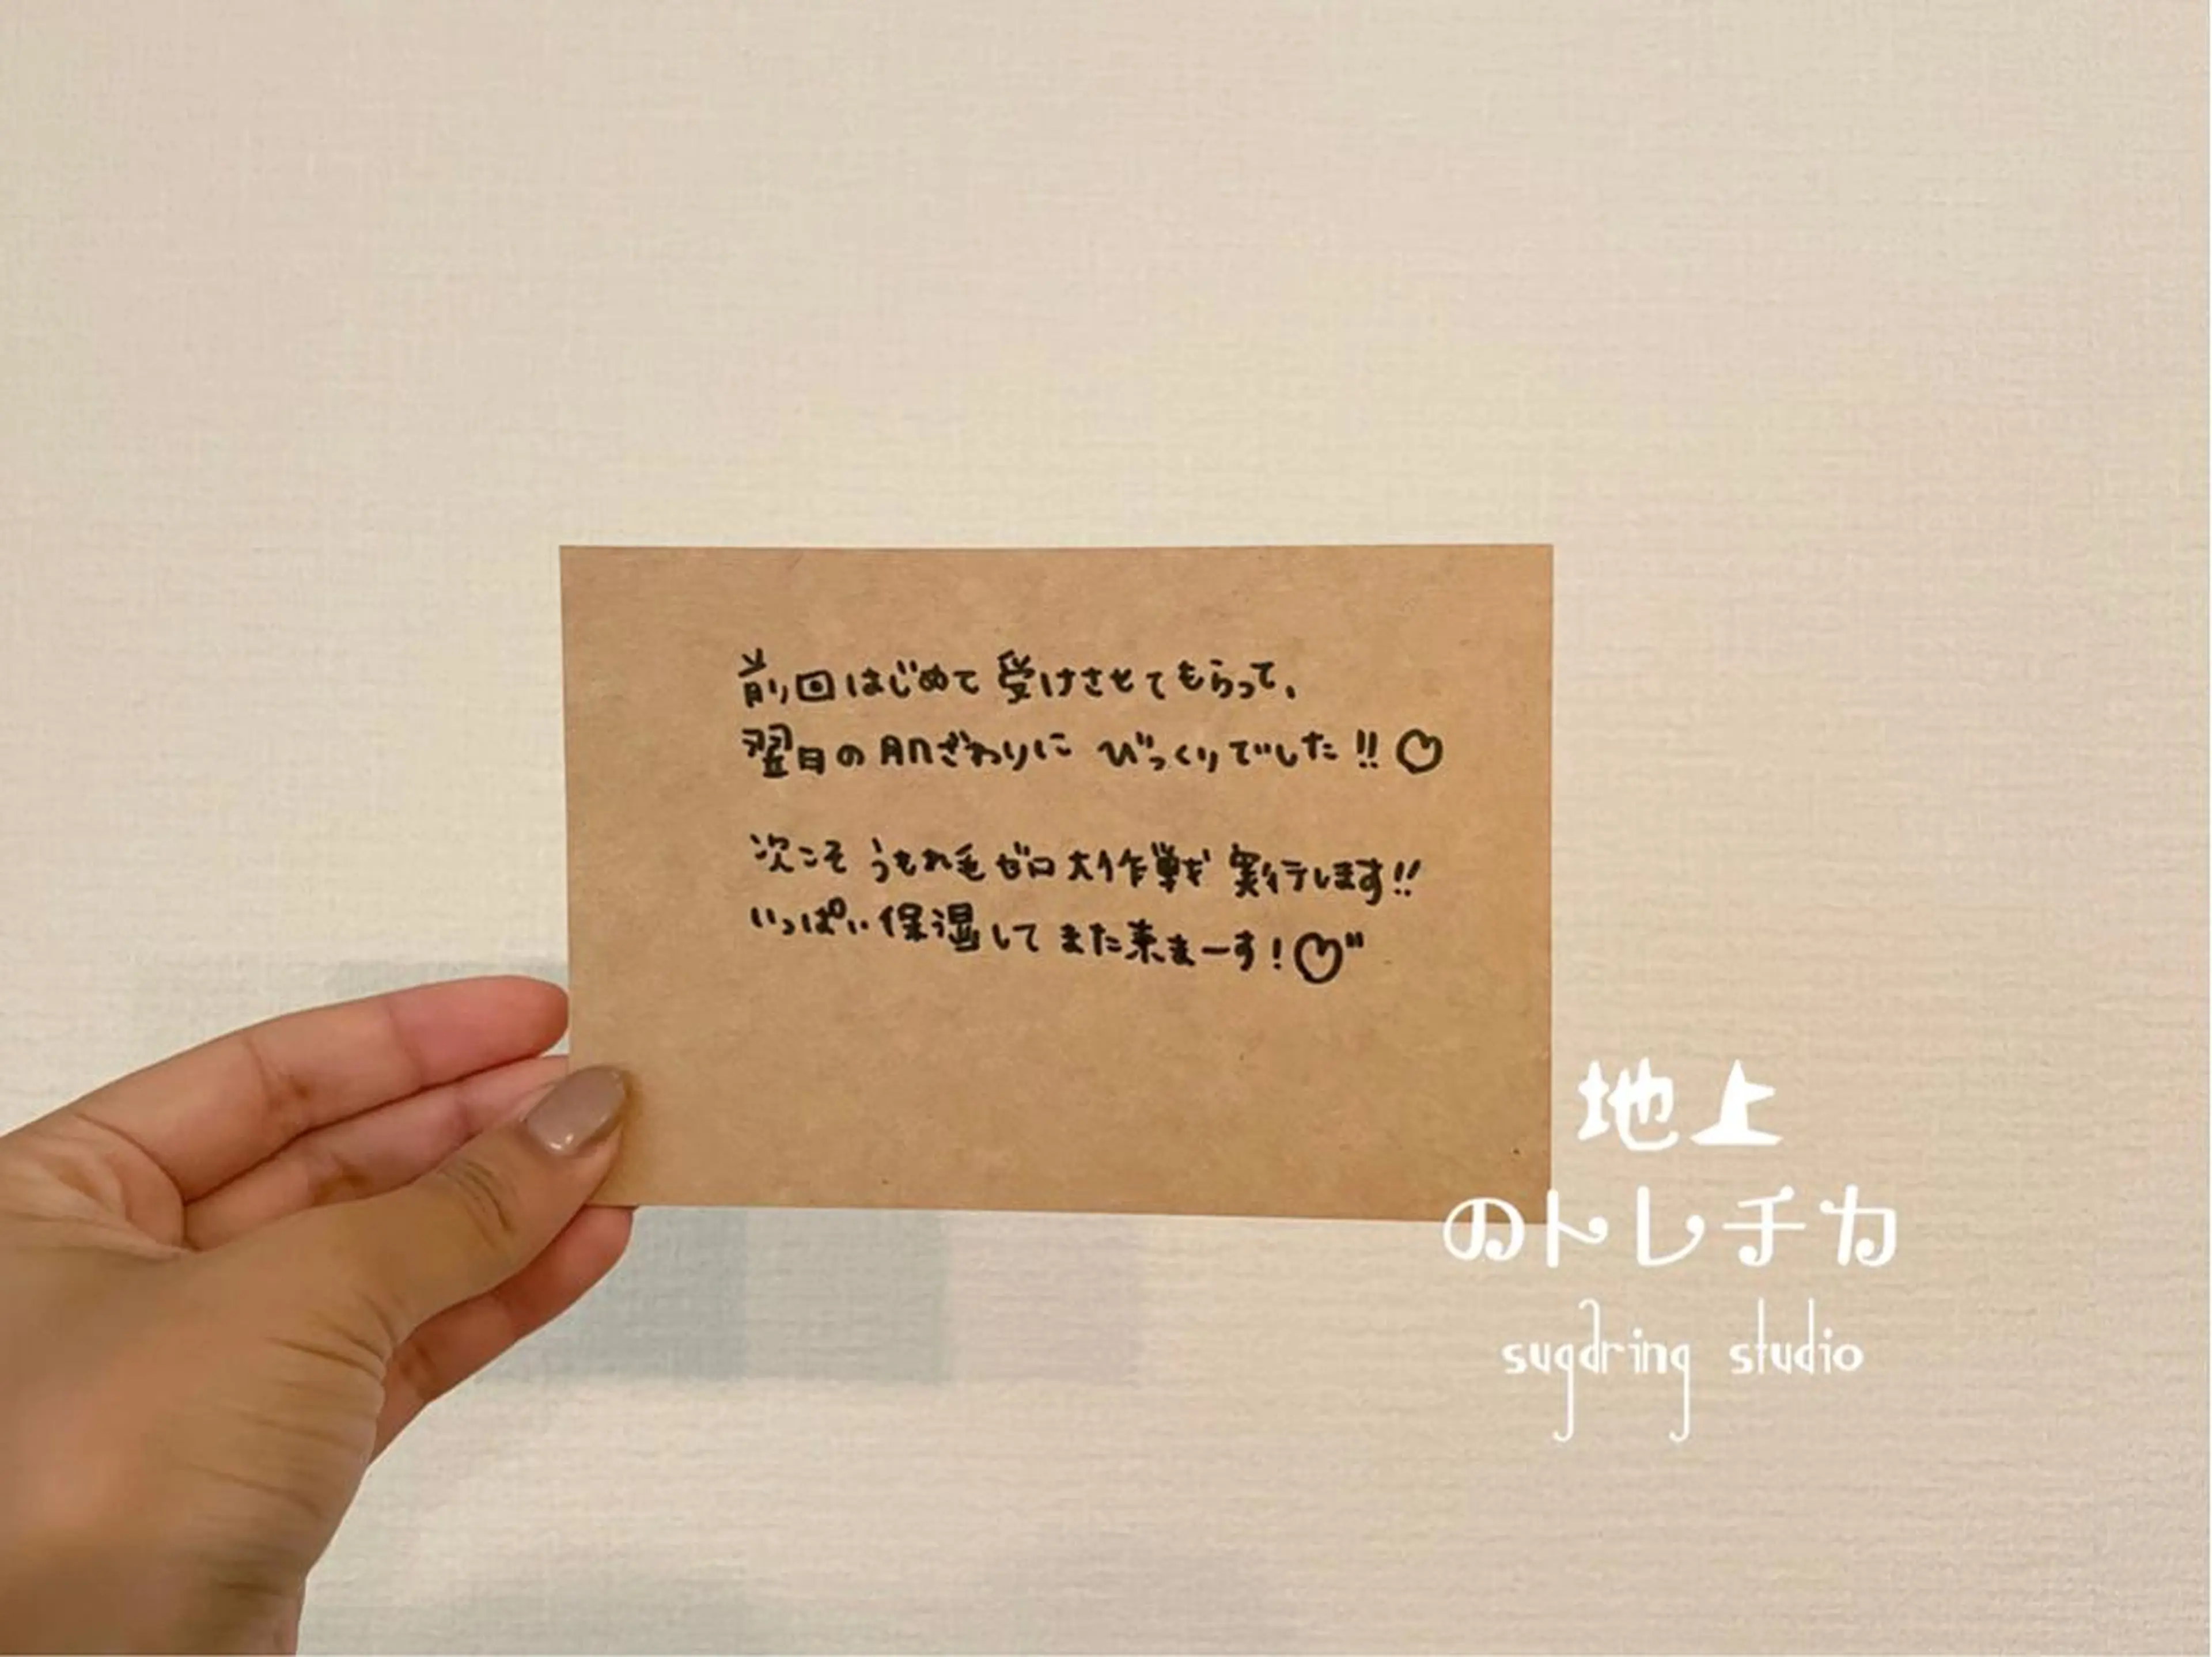 前回はじめて受けさせてもらって、
翌日の肌ざわりにびっくりでした!!♡
次こそうもれ毛ゼロ大作戦実行します!!
いっぱい保湿してまた来まーす!♡"
地上
のトレチカ
sugdring studio